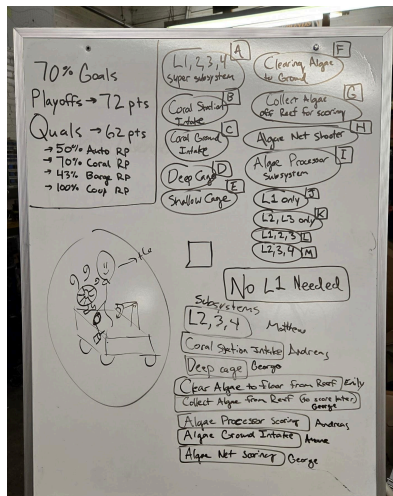 70% Goals
Playoffs → 72 pts
Quals → 62 pts
→ 50% Auto RP
→ 70% Coral RP
→ 43% Barge RP
→ 100% Coop RP
A
L1,2,3,4
super subsystem
B
Coral Station
Intake
C
Coral Ground
Intake
D
Deep Cage
E
Shallow Cage
F
Clearing Algae
to Ground
G
Collect Algae
off Reef for scoring
H
Algae Net Shooter
I
Algae Processor
Subsystem
J
L1 only
K
L2, L3 only
L1,2,3 L
L2,3,4 M
No L1 Needed
Subsystems
L2,3,4 Matthew
Coral Station Intake Andreas
Deep cage George
Clear Algae to floor from Reef Emily
Collect Algae from Reef (to score later)
George
Algae Processor Scoring Andreas
Algae Ground Intake
Algae Net Scoring George